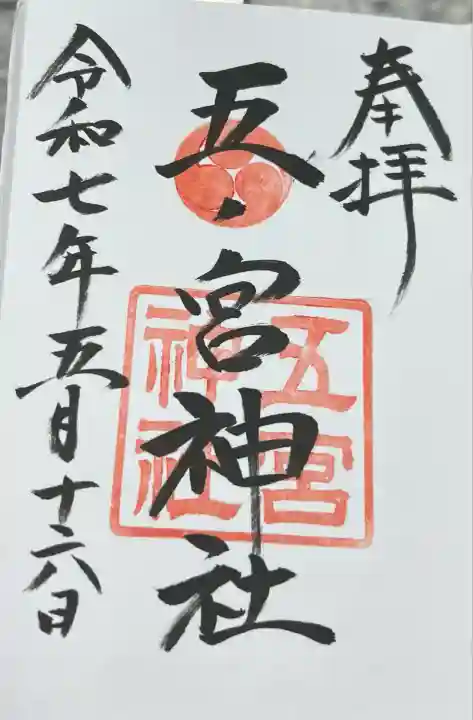 奉拝
五ノ宮神社
五宮
神社
令和七年五月十六日